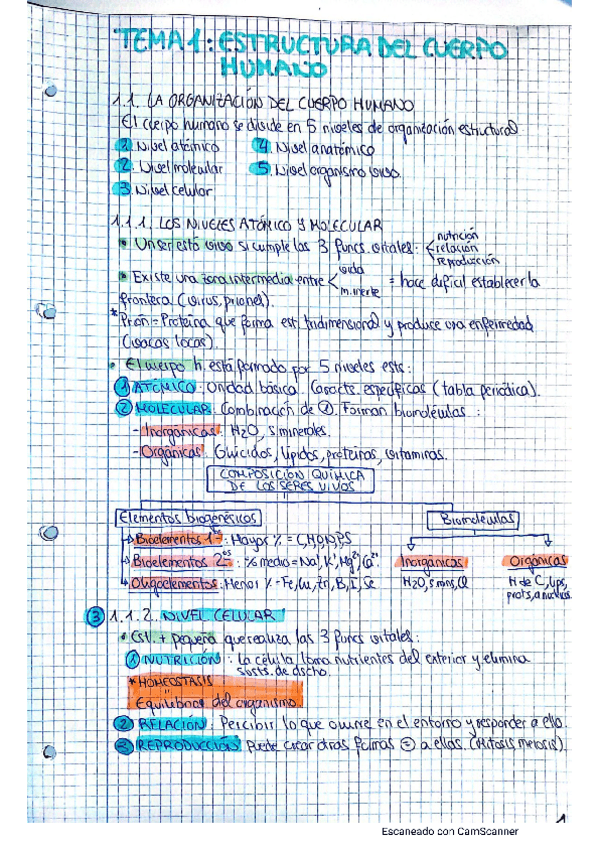 TEMA 1: ESTRUCTURA DEL CUERPO
HUMANO
1.1. LA ORGANIZACIÓN DEL CUERPO HUMANO
El cuerpo humano se divide en 5 niveles de organización estructural
1. Nivel atómico 4. Nivel anatómico
2. Nivel molecular 5. Nivel organismo vivo.
3. Nivel celular
1.1.1. LOS NIVELES ATÓMICO Y MOLECULAR
• Un ser está vivo si cumple las 3 funcs. vitales: nutrición
relación
reproducción
• Existe una zona intermedia entre vida
m. inerte = hace difícil establecer la
frontera (virus, priones).
* Prión = Proteína que forma est. tridimensional y produce una enfermedad
(vacas locas).
• El cuerpo h. está formado por 5 niveles ests:
1 ATÓMICO: Unidad básica. Caracts. específicas (tabla periódica).
2 MOLECULAR: Combinación de 1. Forman biomoléculas:
- Inorgánicas: H2O, s minerales.
- Orgánicas: Glúcidos, lípidos, proteínas, vitaminas.
COMPOSICIÓN QUÍMICA
DE LOS SERES VIVOS
Elementos biogenéticos Biomoléculas
Bioelementos 1os: Mayor % = C,H,O,N,P,S
Bioelementos 2os: % medio = Na+, K+, Mg2+, Ca2+ Inorgánicas Orgánicas
Oligoelementos: Menor % - Fe, Cu, Zn, B, I, Se H2O, s mins, H de C, lips,
prots, a nucleicos
3 1.1.2. NIVEL CELULAR
• Est. + pequeña que realiza las 3 funcs vitales:
1 NUTRICIÓN: la célula toma nutrientes del exterior y elimina
susts. de dscho.
* HOMEOSTASIS
Equilibrio del organismo
2 RELACIÓN: Percibir lo que ocurre en el entorno y responder a ello.
3 REPRODUCCIÓN: Puede crear otras formas = a ellas. (Mitosis meiosis).
1
Escaneado con CamScanner